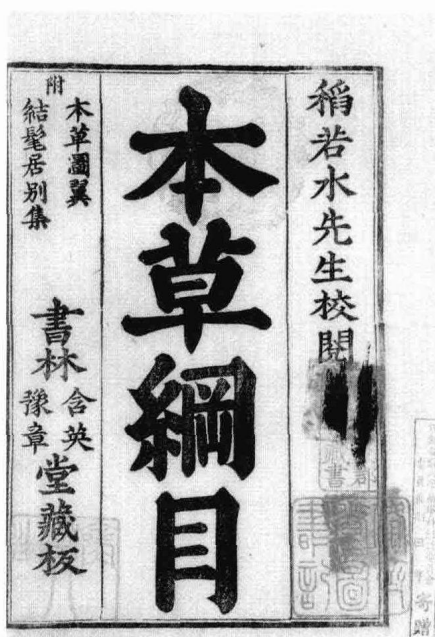 稲若水先生校閱
本草綱目
附
本草圖翼
結髦居別集
書林
含英
豫章
堂藏板
寄贈